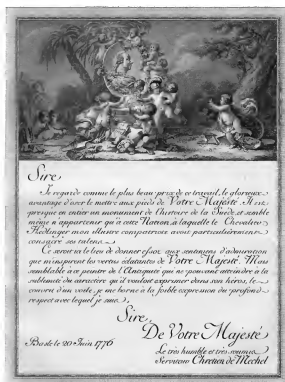 Sire
Je regarde comme le plus beau prix de ce travail, le glorieux
avantage d'oser le mettre aux pieds de Votre Majesté. Il est
presque en entier un monument de l'histoire de la Suède, et semble
même n'appartenir qu'à cette Nation, à laquelle le Chevalier
Hedlinger mon illustre compatriote avoit particulièrement
consacré ses talens.
Ce seroit ici le lieu de donner essor aux sentimens d'admiration
que m'inspirent les vertus éclatantes de Votre Majesté. Mais
semblable à ce peintre de l'Antiquité qui ne pouvant atteindre à la
sublimité du caractère qu'il vouloit exprimer dans son héros, le
couvrit d'un voile, je me borne à la foible expression du profond
respect avec lequel je suis.
Sire,
De Votre Majesté
Basle le 20 Juin 1776
Le très humble et très soumis
Serviteur Chretien de Mechel